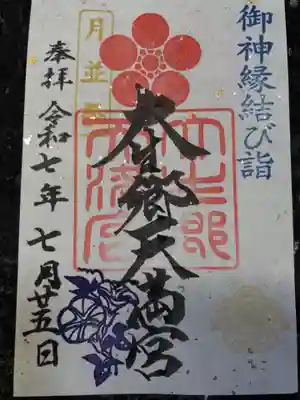 御神縁結び詣
大生郷天満宮
月並祭
奉拝 令和七年 七月廿五日